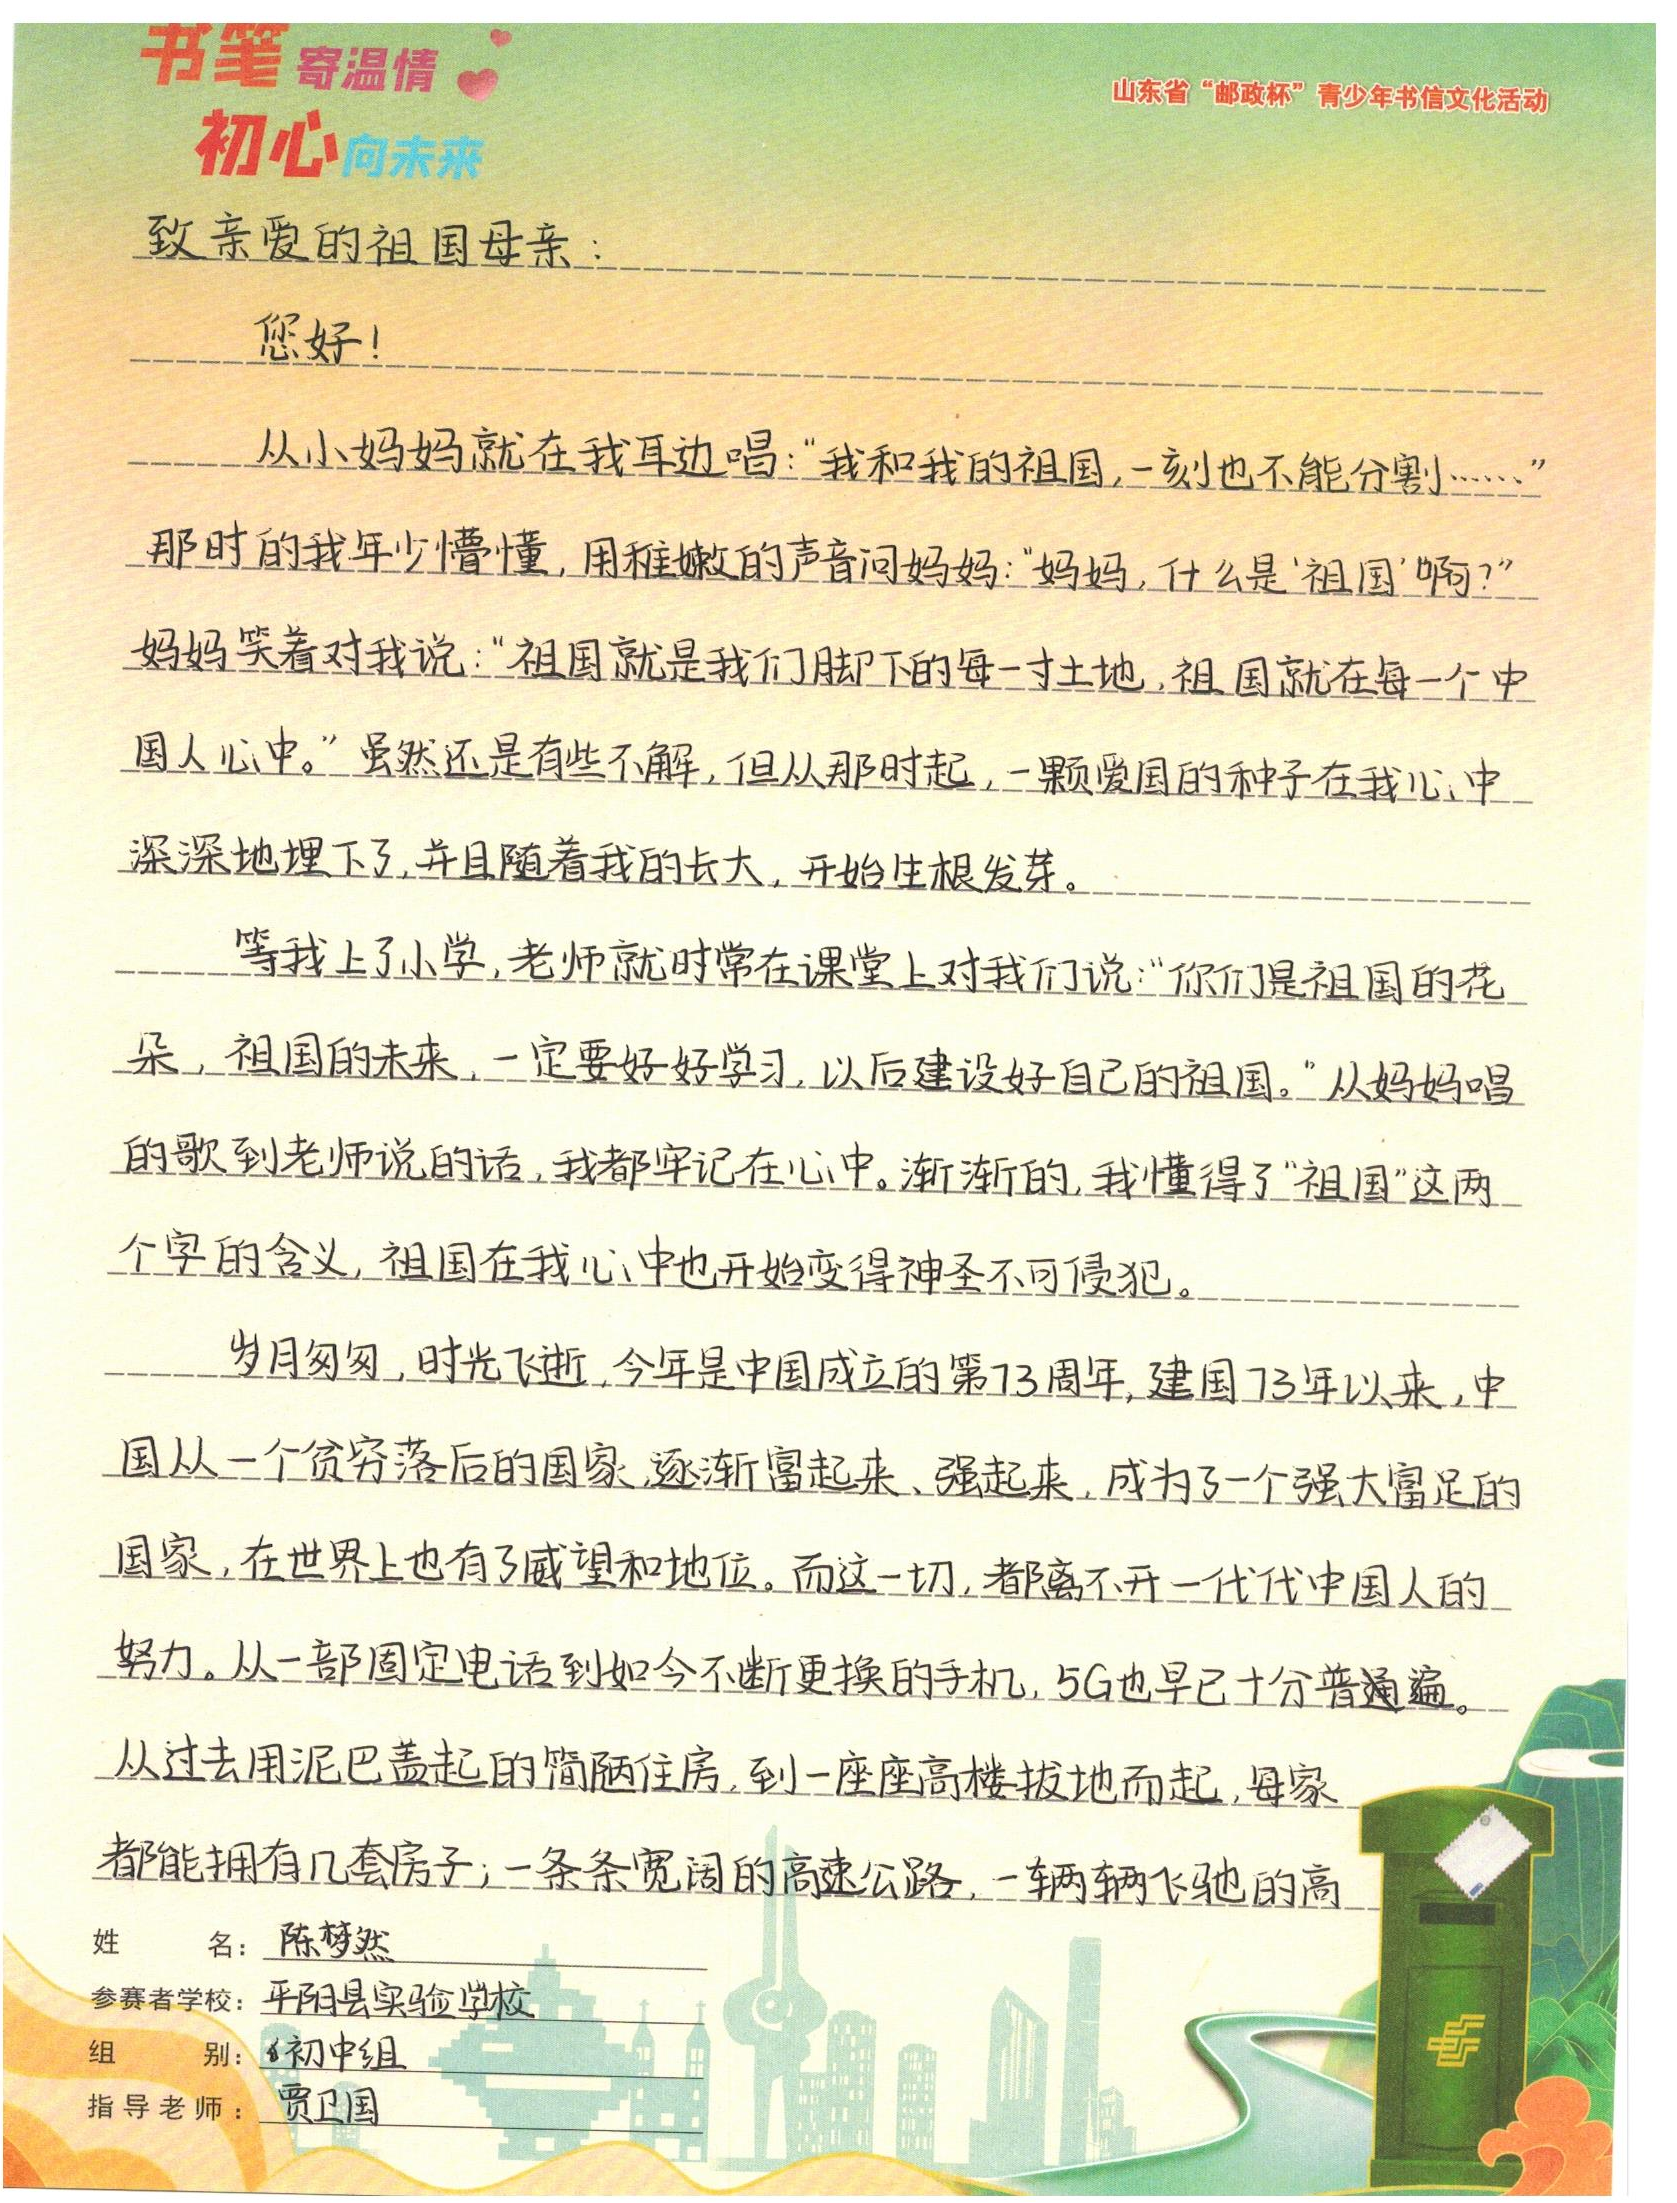 书笔寄温情
初心向未来
山东省“邮政杯”青少年书信文化活动
致亲爱的祖国母亲：
您好！
从小妈妈就在我耳边唱：“我和我的祖国，一刻也不能分割……”
那时的我年少懵懂，用稚嫩的声音问妈妈：“妈妈，什么是‘祖国’啊？”
妈妈笑着对我说：“祖国就是我们脚下的每一寸土地，祖国就在每一个中
国人心中。”虽然还是有些不解，但从那时起，一颗爱国的种子在我心中
深深地埋下了，并且随着我的长大，开始生根发芽。
等我上了小学，老师就时常在课堂上对我们说：“你们是祖国的花
朵，祖国的未来，一定要好好学习，以后建设好自己的祖国。”从妈妈唱
的歌到老师说的话，我都牢记在心中。渐渐的，我懂得了“祖国”这两
个字的含义，祖国在我心中也开始变得神圣不可侵犯。
岁月匆匆，时光飞逝，今年是中国成立的第73周年，建国73年以来，中
国从一个贫穷落后的国家，逐渐富起来、强起来，成为了一个强大富足的
国家，在世界上也有了威望和地位。而这一切，都离不开一代代中国人的
努力。从一部固定电话到如今不断更换的手机，5G也早已十分普遍。
从过去用泥巴盖起的简陋住房，到一座座高楼拔地而起，每家
都能拥有几套房子；一条条宽阔的高速公路，一辆辆飞驰的高
姓名：陈梦然
参赛者学校：平阴县实验学校
组别：初中组
指导老师：贾卫国